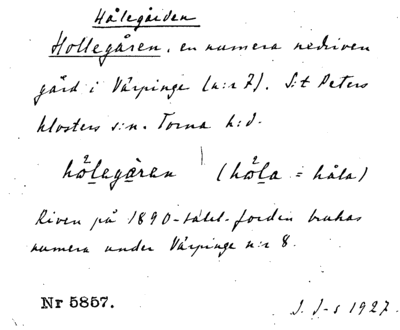 Hålegården
Hollegåren, en numera nedriven
gård i Värpinge (n:r 7). S:t Peters
klosters s:n. Torna h:d.
hòlegàran (hòla = håla)
Riven på 1890-talet. Jorden brukas
numera under Värpinge n:r 8.
Nr 5857.
J. J-s 1927.